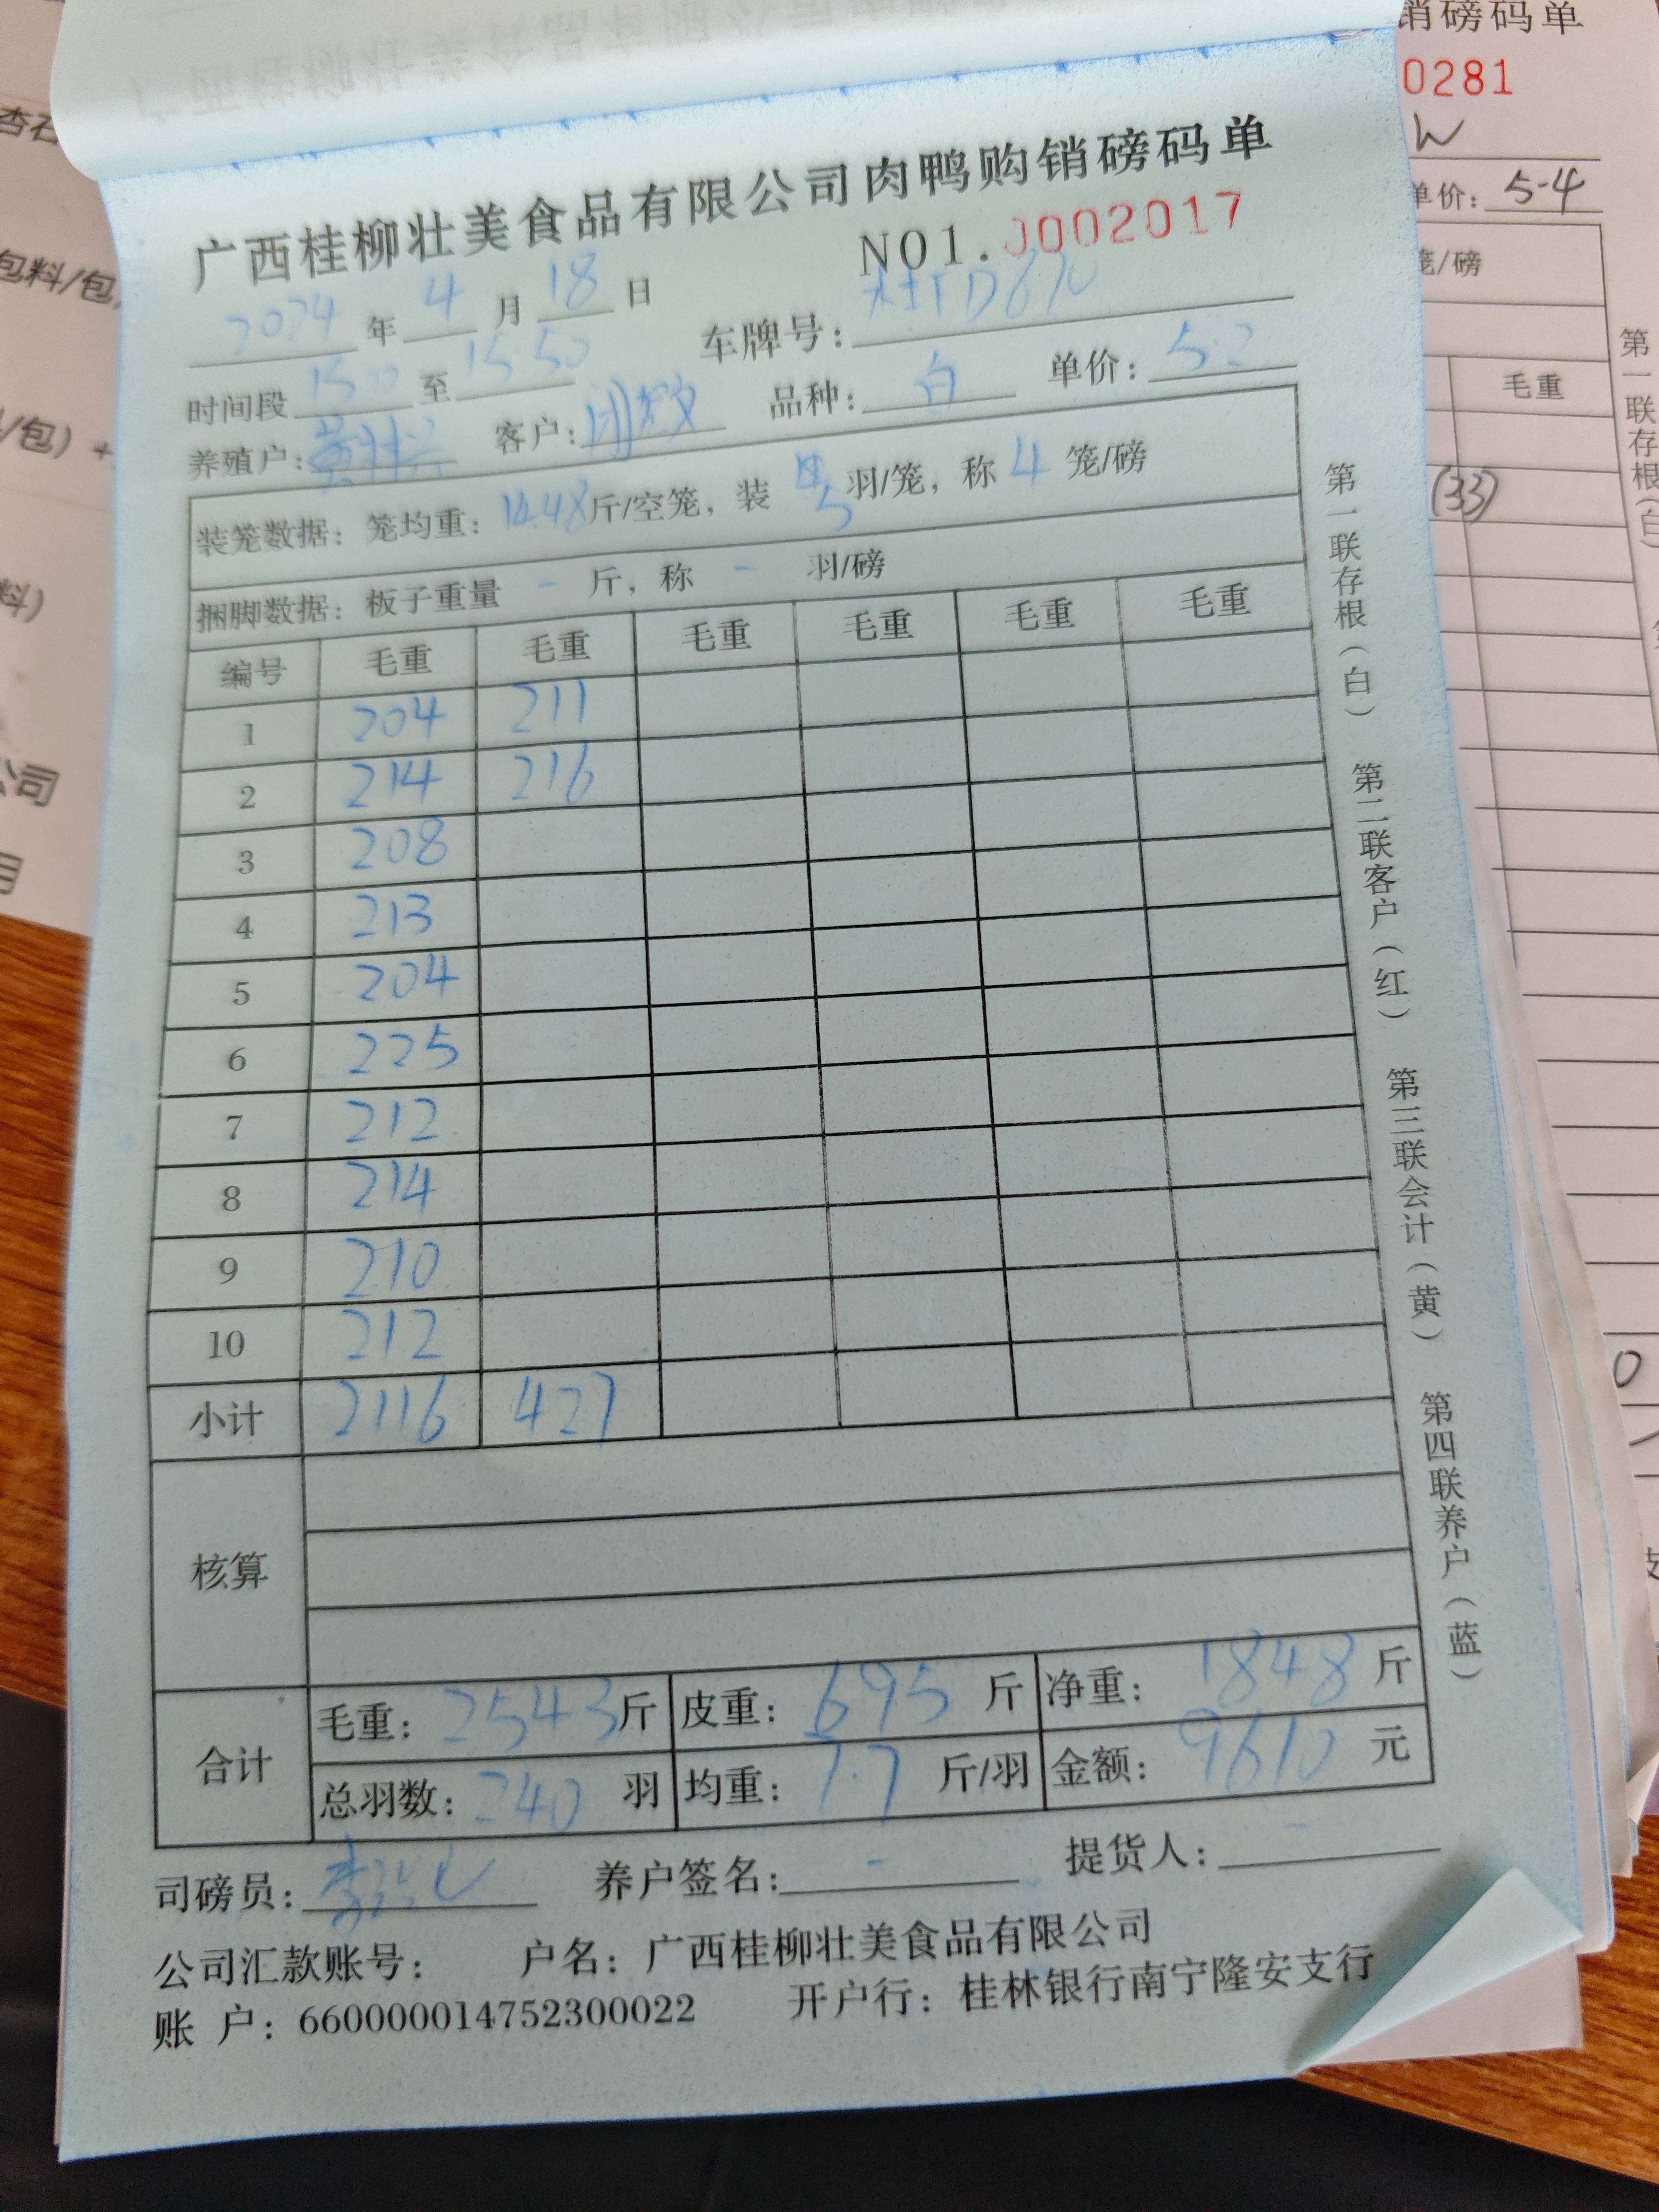 广西桂柳壮美食品有限公司肉鸭购销磅码单
NO1.0002017
2024年4月18日 车牌号：
时间段 1500 至 1550
养殖户： 客户： 品种：白 单价：5.2
装笼数据：笼均重：14.48斤/空笼，装5羽/笼，称4笼/磅
捆脚数据：板子重量 - 斤，称 - 羽/磅
编号 毛重 毛重 毛重 毛重 毛重 毛重
1 204 211
2 214 216
3 208
4 213
5 204
6 225
7 212
8 214
9 210
10 212
小计 2116 427
核算
合计 毛重：2543斤 皮重：695斤 净重：1848斤
总羽数：240羽 均重：7.7斤/羽 金额：9610元
司磅员： 养户签名：- 提货人：-
公司汇款账号： 户名：广西桂柳壮美食品有限公司
账 户：660000014752300022 开户行：桂林银行南宁隆安支行
第一联存根（白） 第二联客户（红） 第三联会计（黄） 第四联养户（蓝）
销磅码单
0281
单价：5.4
笼/磅
毛重
(33)
第一联存根（白）
包料/包
/包）+
料）
公司
月